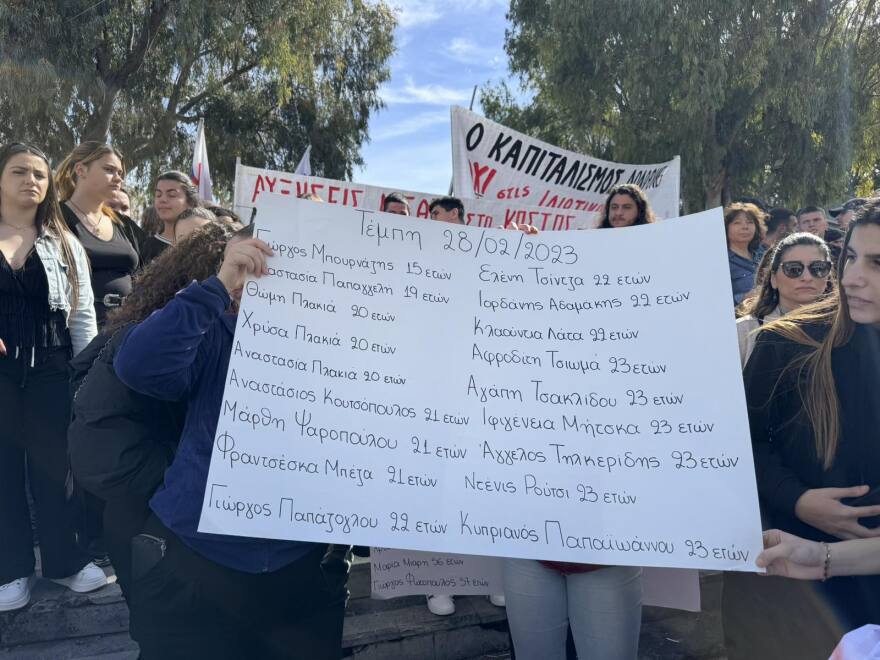 Ο ΚΑΠΙΤΑΛΙΣΜΟΣ
ΟΧΙ στις
ΑΥΞΗΣΕΙΣ
ΣΤΟ ΚΟΣΤΟΣ
Τέμπη 28/02/2023
Γιώργος Μπουρνάζης 15 ετών
Αναστασία Παπαγγελή 19 ετών
Θώμη Πλακιά 20 ετών
Χρύσα Πλακιά 20 ετών
Αναστασία Πλακιά 20 ετών
Αναστάσιος Κουτσόπουλος 21 ετών
Μάρθη Ψαροπούλου 21 ετών
Φραντσέσκα Μπέζα 21 ετών
Γιώργος Παπάζογλου 22 ετών
Ελένη Τσίντζα 22 ετών
Ιορδάνης Αδαμάκης 22 ετών
Κλαούντια Λάτα 22 ετών
Αφροδίτη Τσιωμά 23 ετών
Αγάπη Τσακλίδου 23 ετών
Ιφιγένεια Μήτσκα 23 ετών
Άγγελος Τηλκερίδης 23 ετών
Ντένις Ρούτσι 23 ετών
Κυπριανός Παπαϊωάννου 23 ετών
Μαρία 56 ετών
Γιώργος Φωτόπουλος 57 ετών